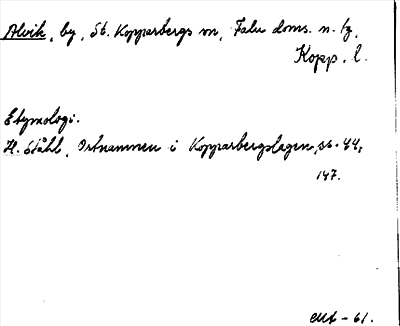 Alvik, by, St. Kopparbergs sn, Falu doms. n. tg,
Kopp. l.
Etymologi.
H. Ståhl, Ortnamnen i Kopparbergslagen, ss. 44,
147.
61.